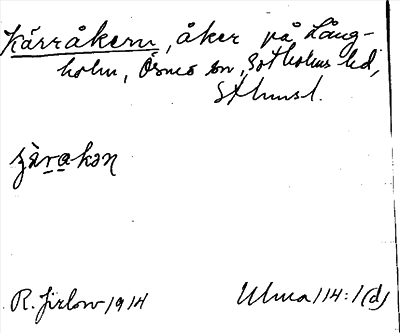 Kärråkern, åker på Lång-
holm, Ösmo sn, Sotholms hd,
Sthmsl.
R. Jirlow 1914 Ulma 114:1(d)